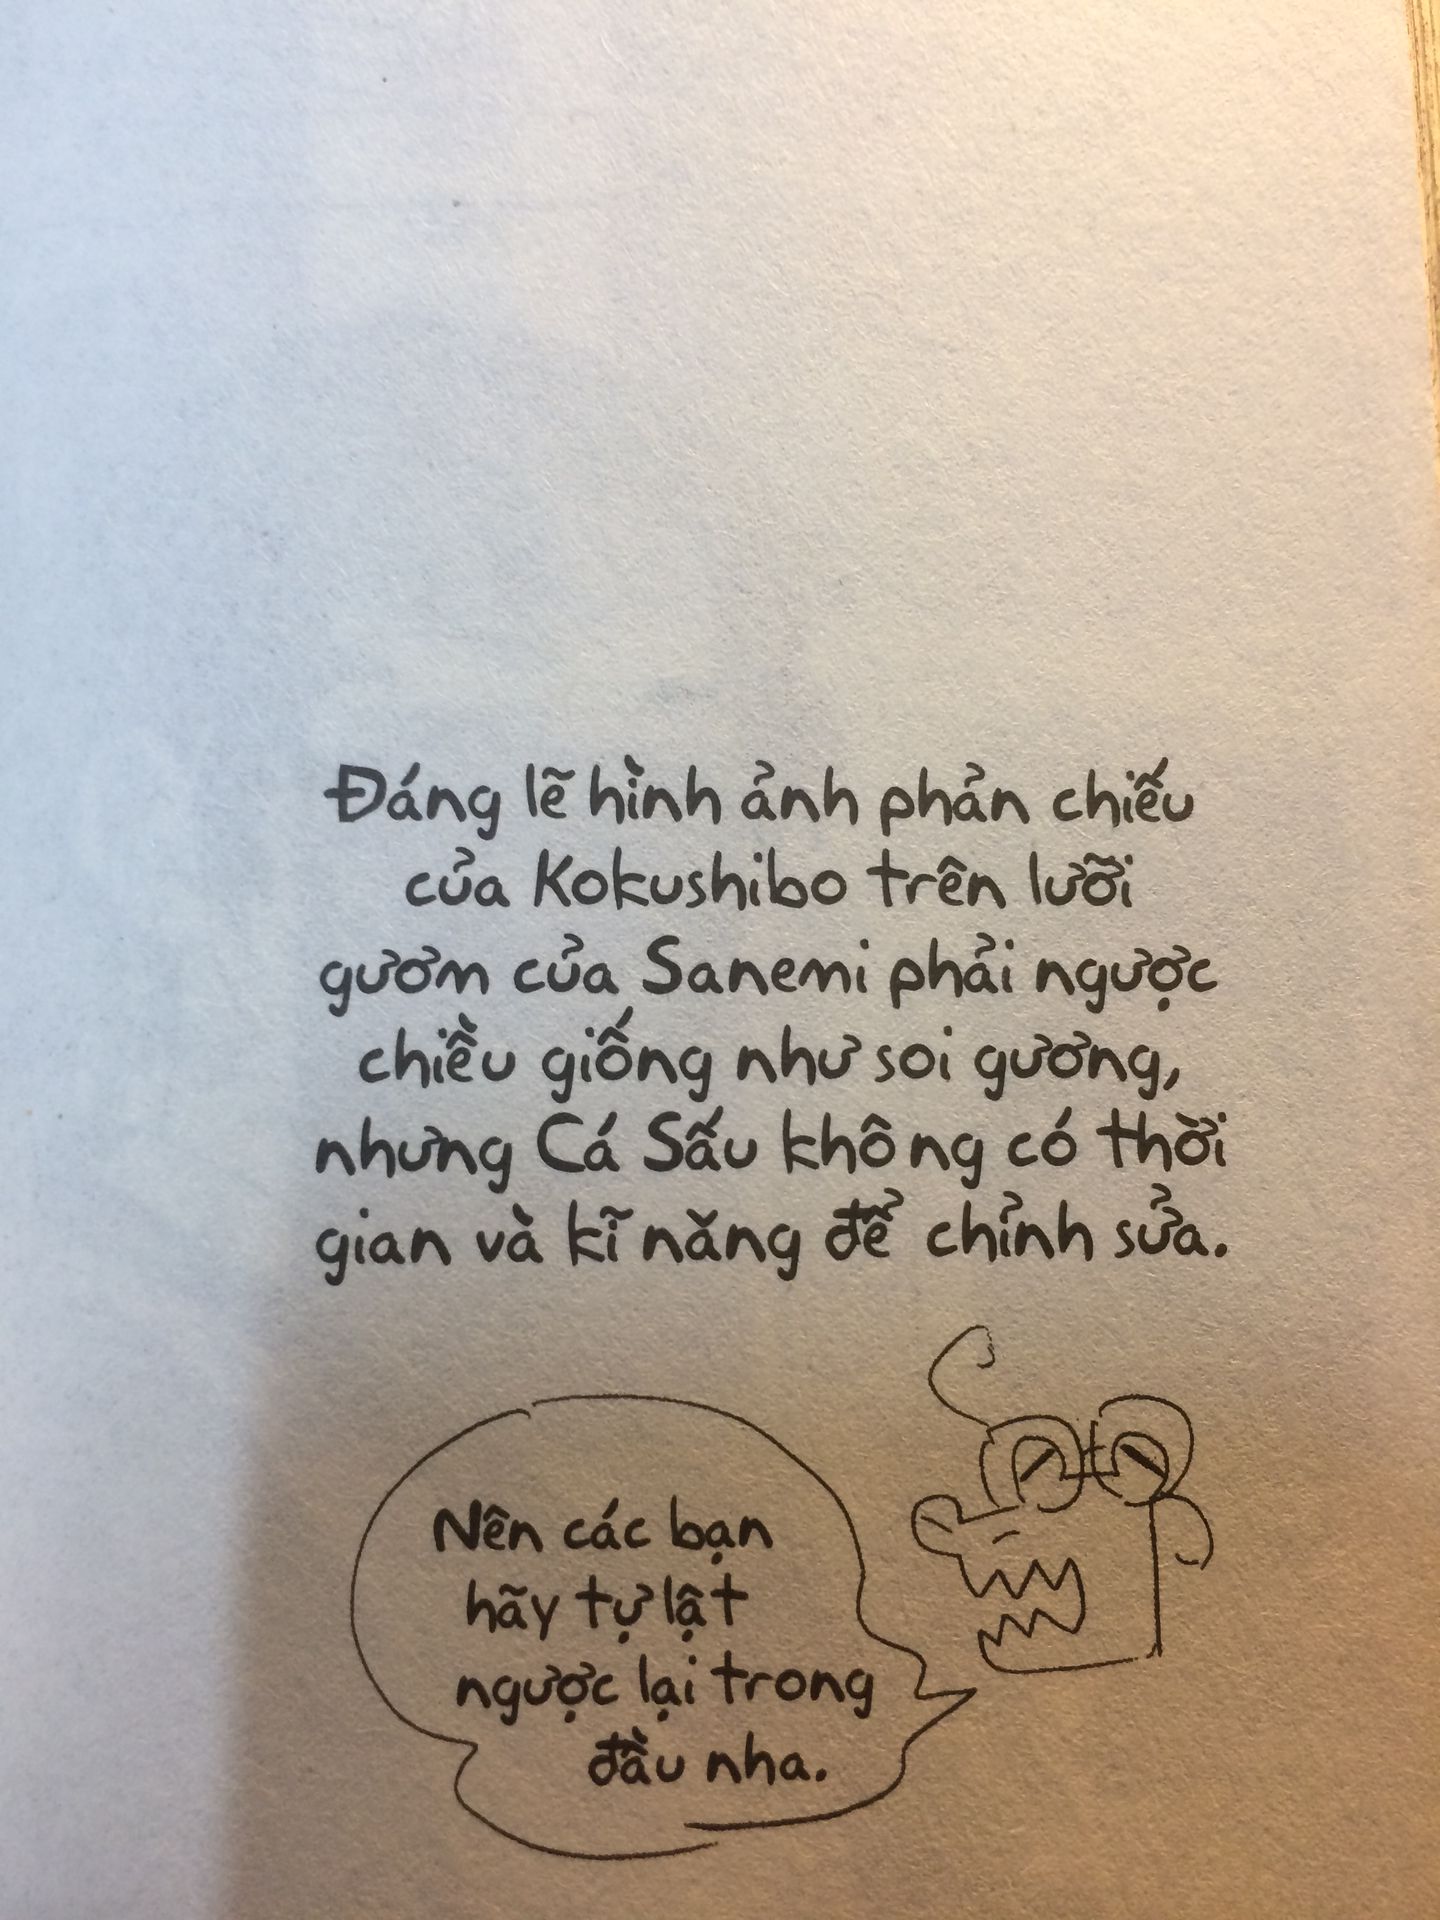 Đáng lẽ hình ảnh phản chiếu
của Kokushibo trên lưỡi
gươm của Sanemi phải ngược
chiều giống như soi gương,
nhưng Cá Sấu không có thời
gian và kĩ năng để chỉnh sửa.
Nên các bạn
hãy tự lật
ngược lại trong
đầu nha.